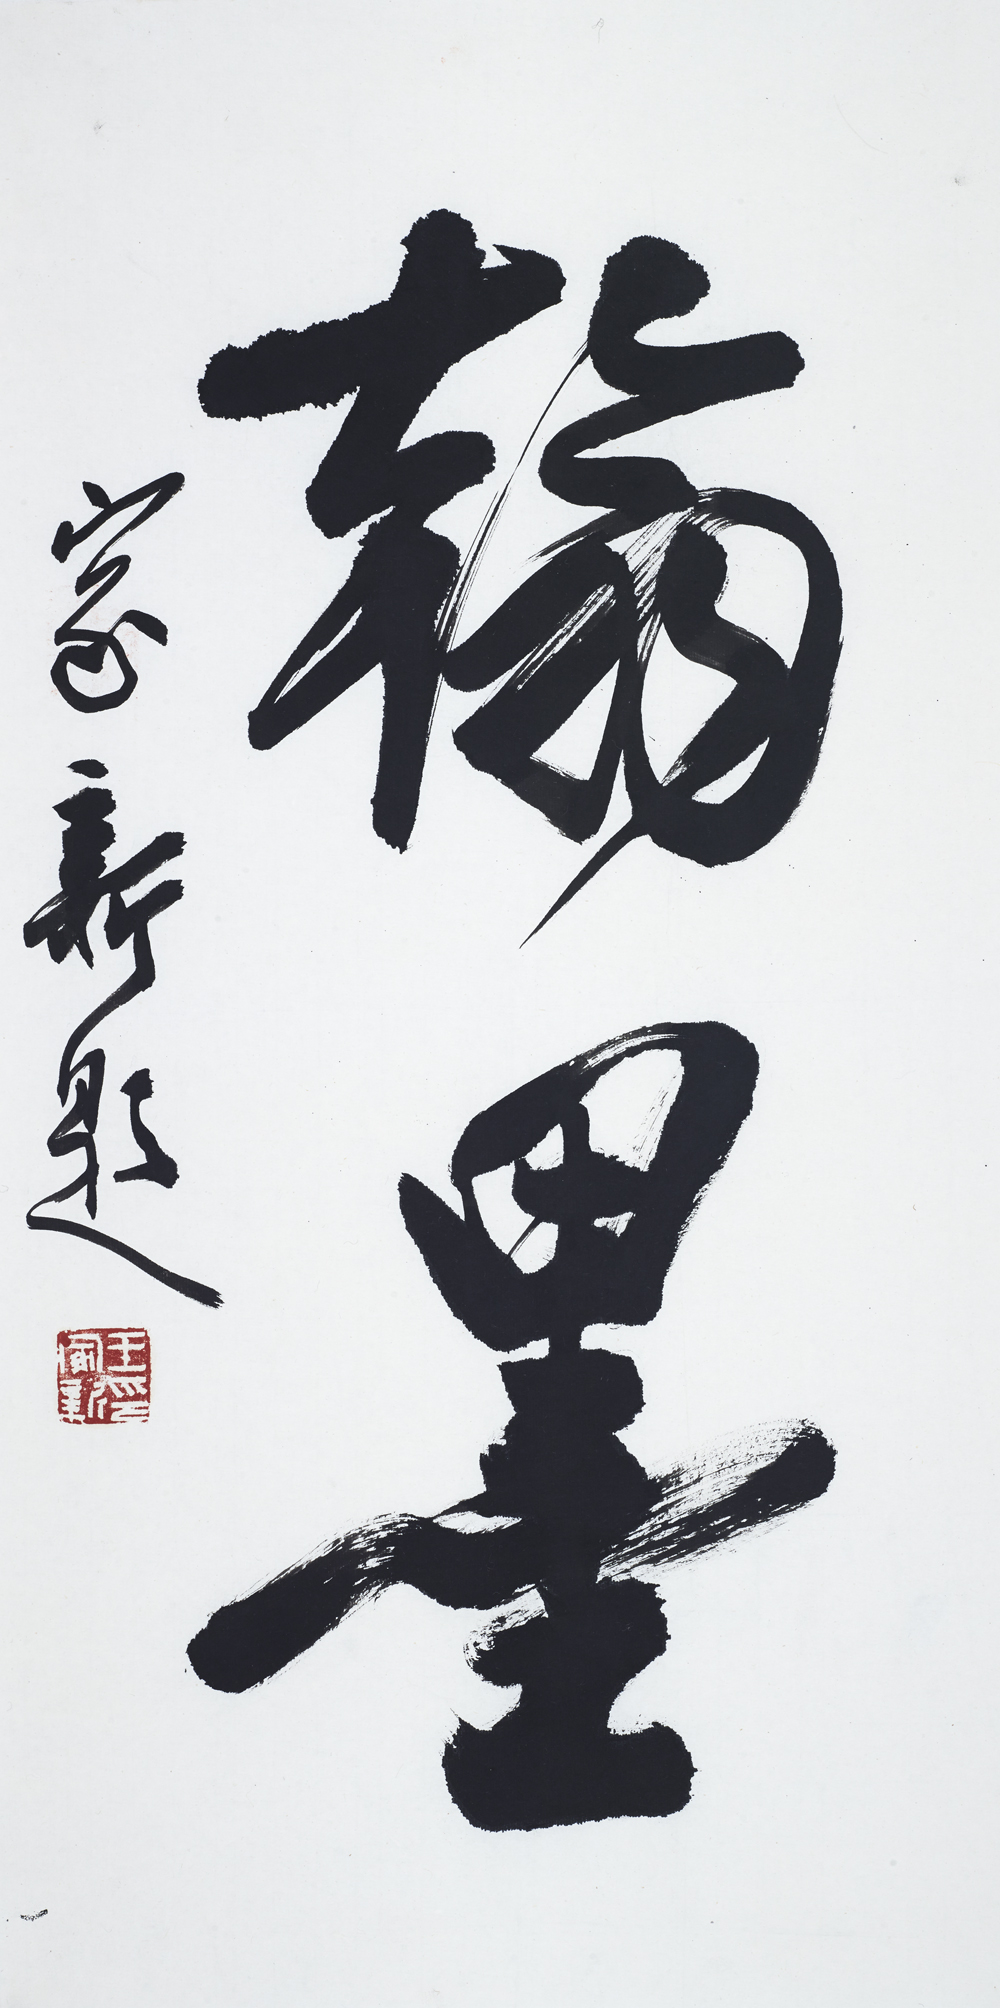 翰墨
家新题
王家新印